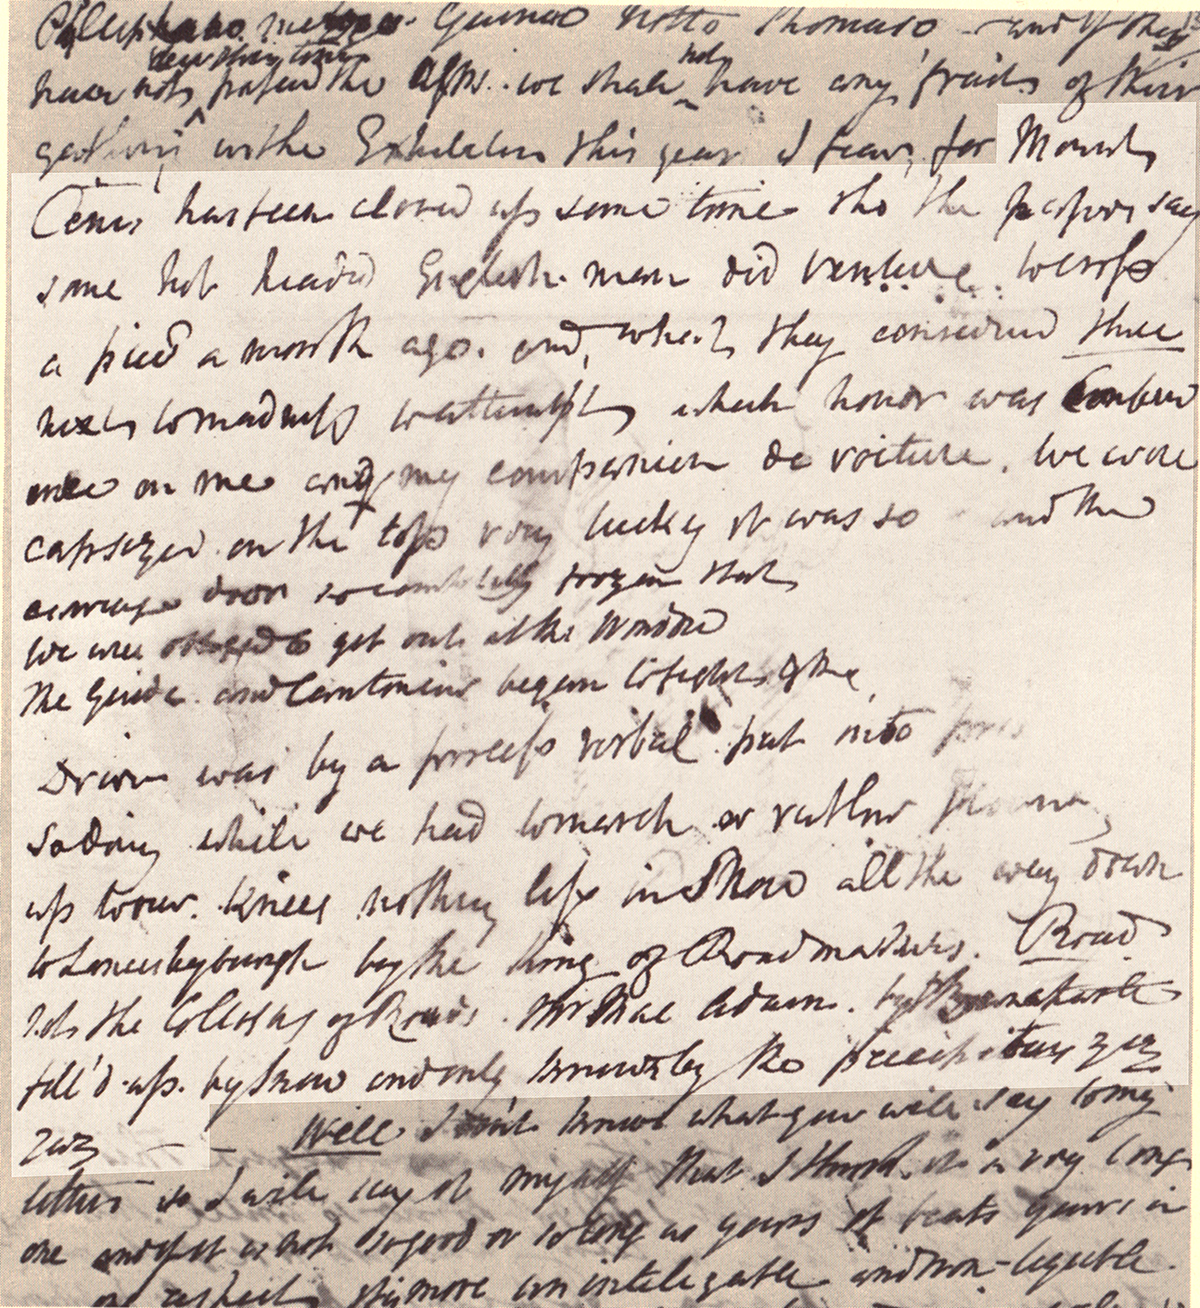 have not passed the Alps. we shall not have any fruits of their
gathering in the Exhibition this year I fear, for Mount
Cenis has been closed up some time tho the papers say
some hot headed English-man did venture to cross
a pied a month ago. and, what, they considered there
next to madness to attempt, which honor was
on me and my companion de voiture. We were
capsized on the top very lucky it was so and the
carriage door so completely frozen that
We were obliged to get out at the window
the Guide and Cantonier began to fight, & the
Driver was by a process verbal put into
so doing while we had to march or rather
up to our Knees nothing less in Snow all the way down
to Lancesbyburgh by the King of Roadmakers. Road
Not the Colossus of Roads. Mr Mac Adam. by Bonaparte
fill'd up. by snow and only known by the precipitous zig
zag — — Well I dont know what you will say to my
letter so I will say of myself that I think it a very long
one and yet is not so good or so long as yours it beats yours in
respect, its more unintelegable and non-legible.